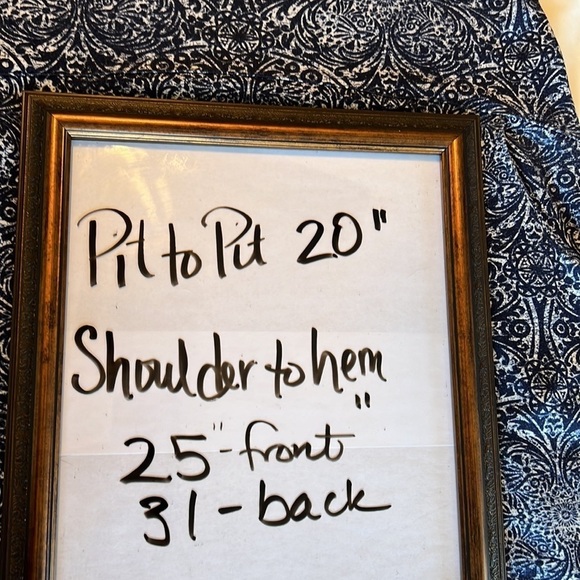 Pit to Pit 20"
Shoulder to hem
"
25"-front
31-back